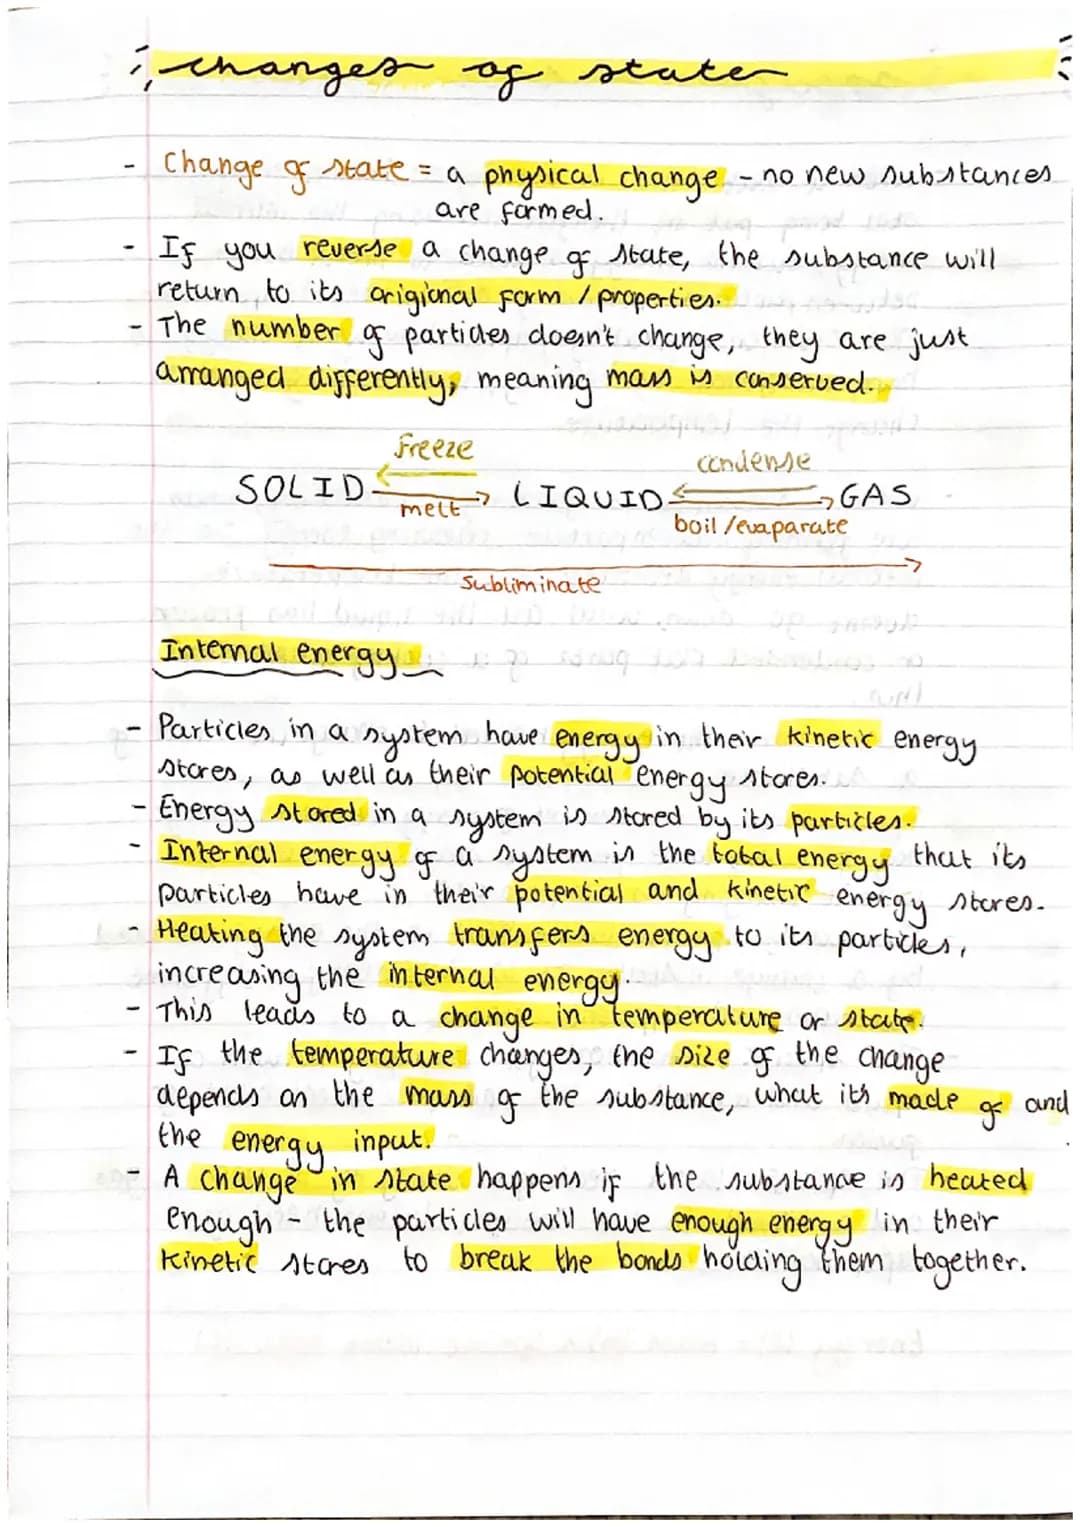 changes of state
- Change of state = a physical change - no new substances
are formed.
- If you reverse a change of state, the substance will
return to its origional form / properties.
- The number of particles doesn't change, they are just
arranged differently, meaning mass is conserved.
freeze
condense
SOLID LIQUID GAS
melt
boil/evaparate
Subliminate
Internal energy
- Particles in a system have energy in their kinetic energy
stores, as well as their potential energy stores.
- Energy stored in a system is stored by its particles.
- Internal energy of a system is the total energy that its
particles have in their potential and kinetic energy stores.
- Heating the system transfers energy to its particles,
increasing the internal energy.
- This leads to a change in temperature or state.
- If the temperature changes, the size of the change
depends on the mass of the substance, what its made of and
the energy input.
- A change in state happens if the substance is heated
enough - the particles will have enough energy in their
kinetic stores to break the bonds holding them together.